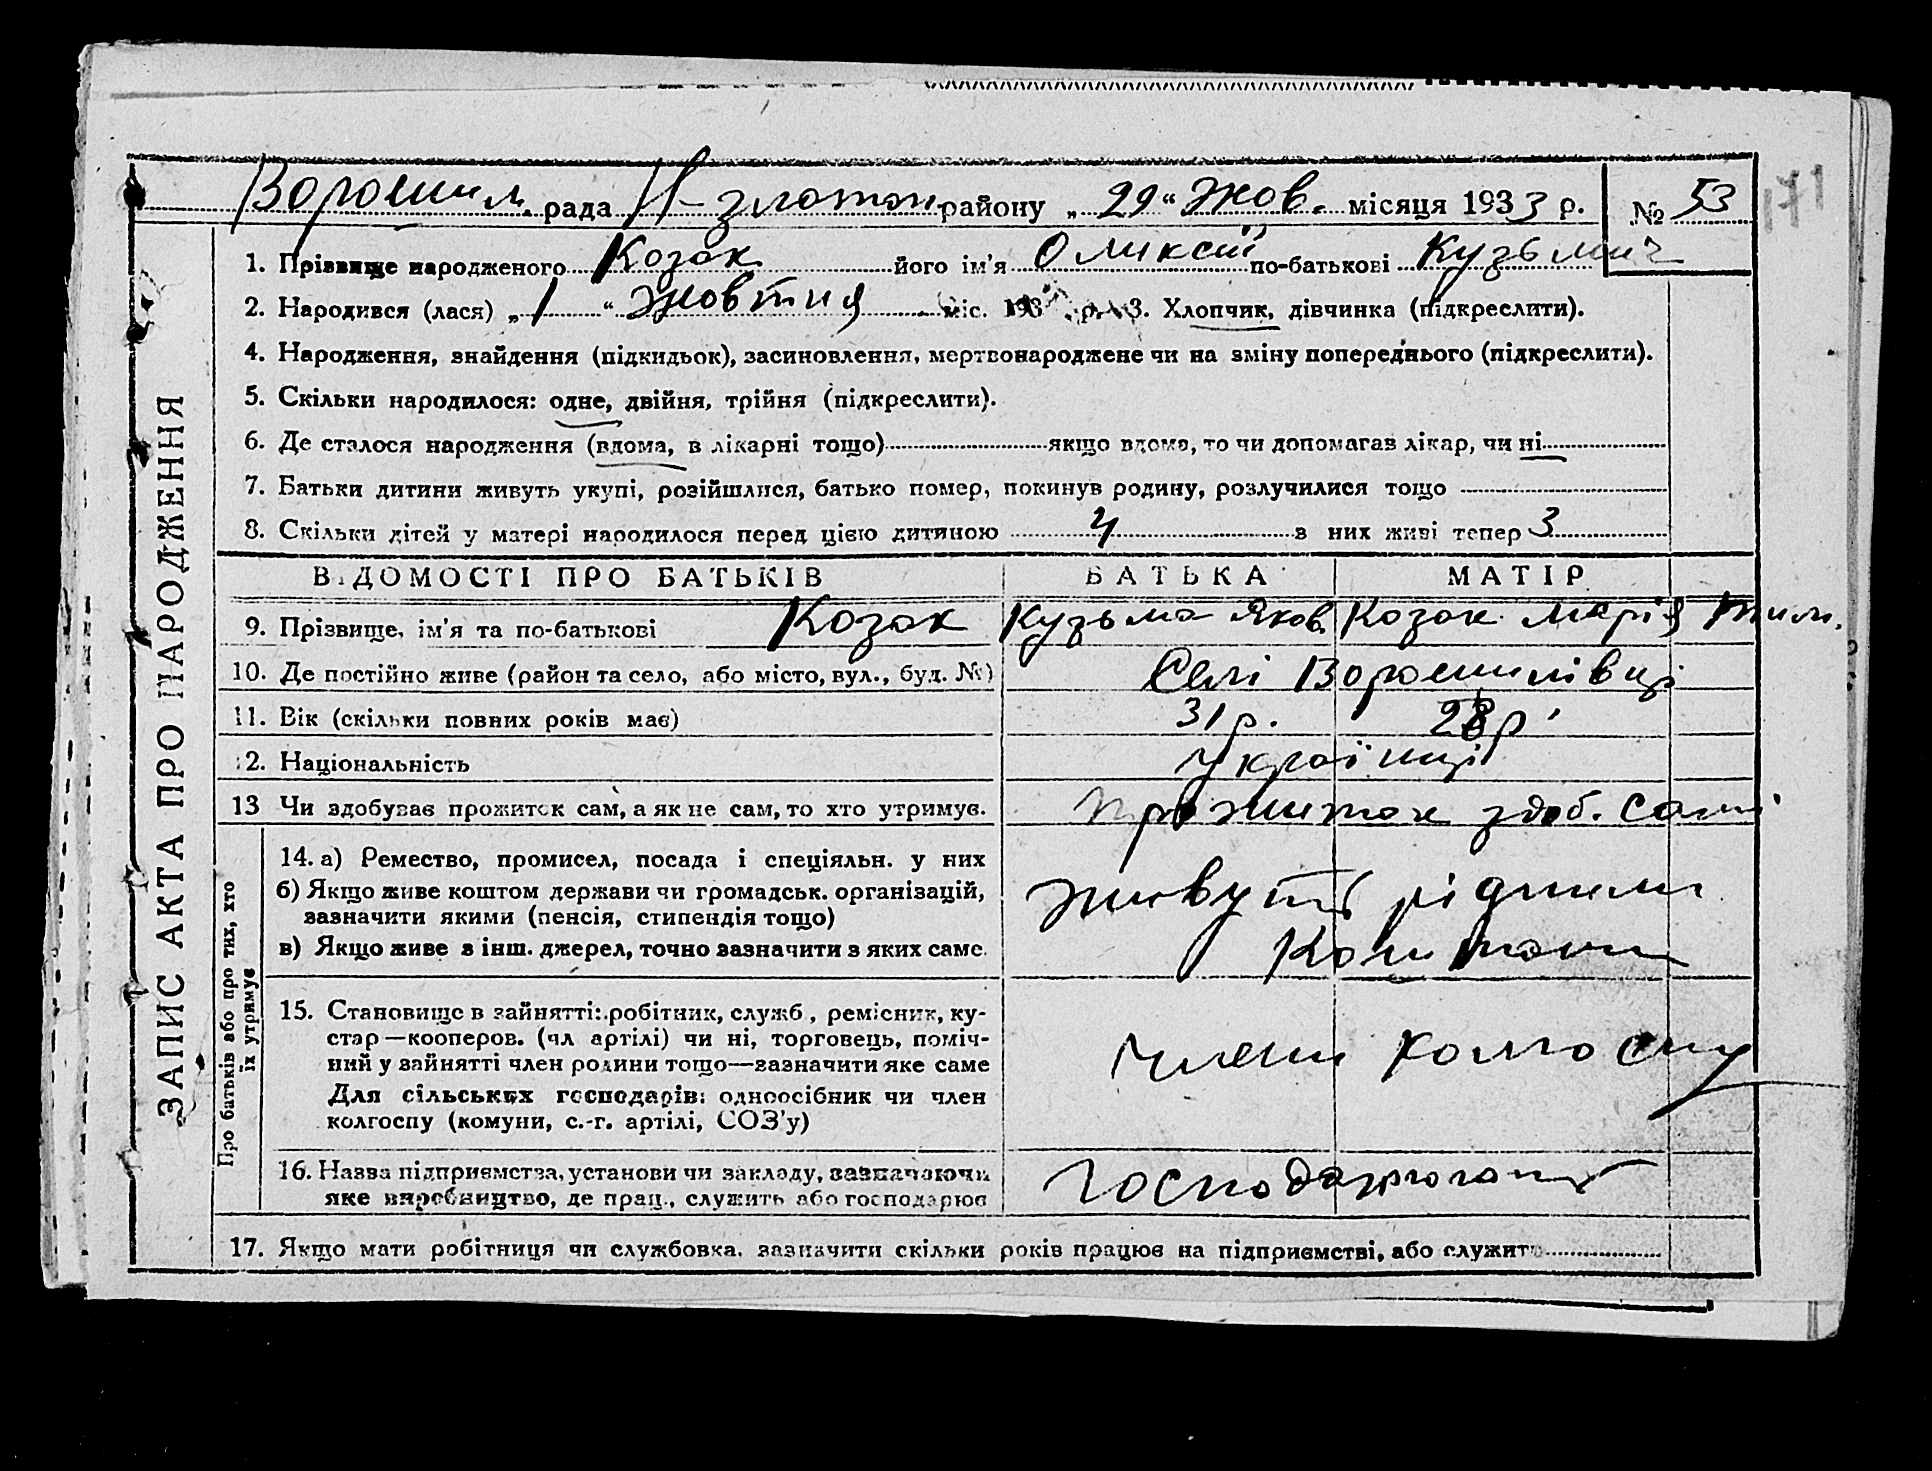 171
Ворошил. рада Н-златоп району „ 29 “ Жов. місяця 1933 р. № 53
ЗАПИС АКТА ПРО НАРОДЖЕННЯ
1. Прізвище народженого Козак його ім'я Оликсій по-батькові Кузьмич
2. Народився (лася) „ 1 “ Жовтня міс. 193 р. 3. Хлопчик, дівчинка (підкреслити).
4. Народження, знайдення (підкидьок), засиновлення, мертвонароджене чи на зміну попереднього (підкреслити).
5. Скільки народилося: одне, двійня, трійня (підкреслити).
6. Де сталося народження (вдома, в лікарні тощо) якщо вдома, то чи допомагав лікар, чи ні
7. Батьки дитини живуть укупі, розійшлися, батько помер, покинув родину, розлучилися тощо
8. Скільки дітей у матері народилося перед цією дитиною 4 з них живі тепер 3
ВІДОМОСТІ ПРО БАТЬКІВ БАТЬКА МАТІР
9. Прізвище, ім'я та по-батькові Козак Кузьма Яков. Козак Марія Тим.
10. Де постійно живе (район та село, або місто, вул., буд. №) Селі Ворошилівці
11. Вік (скільки повних років має) 31 р. 28 р.
12. Національність Українці
13 Чи здобуває прожиток сам, а як не сам, то хто утримує. прожиток здоб. самі
Про батьків або про тих, хто
їх утримує
14. а) Ремество, промисел, посада і спеціяльн. у них
б) Якщо живе коштом держави чи громадськ. організацій, живуть рідними
зазначити якими (пенсія, стипендія тощо)
в) Якщо живе з інш. джерел, точно зазначити з яких саме. коштами
15. Становище в зайнятті: робітник, служб., ремісник, ку-
стар—кооперов. (чл артілі) чи ні, торговець, поміч- члени колгоспу
ний у зайнятті член родини тощо—зазначити яке саме
Для сільських господарів: одноосібник чи член
колгоспу (комуни, с.-г. артілі, СОЗ'у)
16. Назва підприємства, установи чи закладу, зазначаючи
яке виробництво, де прац., служить або господарює
17. Якщо мати робітниця чи службовка, зазначити скільки років працює на підприємстві, або служить